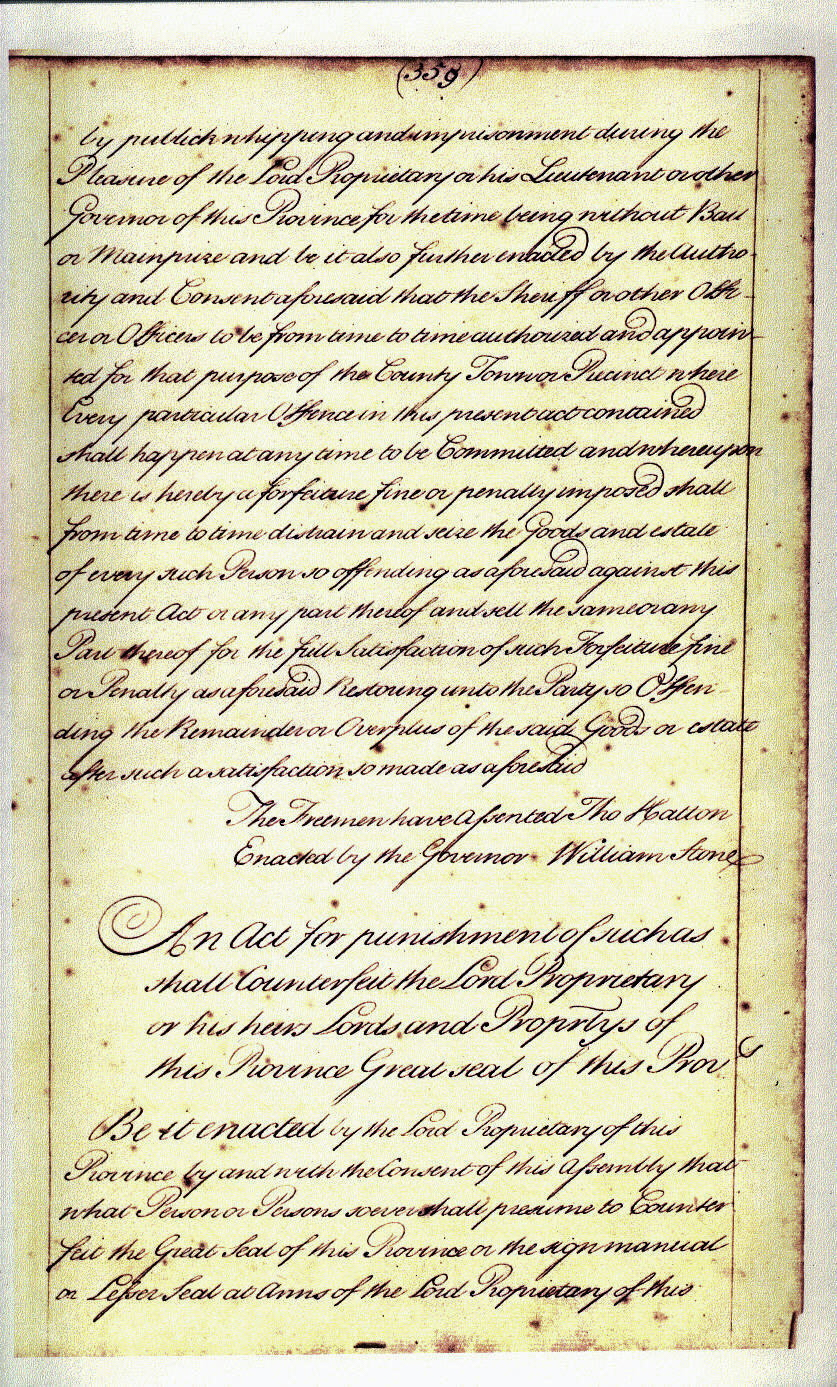 (359)
by publick whipping and imprisonment during the
Pleasure of the Lord Proprietary or his Lieutenant or other
Governor of this Province for the time being without Bail
or Mainprize and be it also further enacted by the Autho-
rity and Consent aforesaid that the Sheriff or other Offi-
cer or Officers to be from time to time authorized and appoin-
ted for that purpose of the County Town or Precinct where
Every particular Offence in this present act contained
shall happen at any time to be Committed and whereupon
there is hereby a forfeiture fine or penalty imposed shall
from time to time distrain and seize the Goods and estate
of every such Person so offending as aforesaid against this
present Act or any part thereof and sell the same or any
Part thereof for the full Satisfaction of such Forfeiture fine
or Penalty as aforesaid Restoring unto the Party so Offen-
ding the Remainder or Overplus of the said Goods or estate
after such a satisfaction so made as aforesaid
The Freemen have assented Tho Hatton
Enacted by the Governor William Stone
An Act for punishment of such as
shall Counterfeit the Lord Proprietary
or his heirs Lords and Proprtys of
this Province Great seal of this Prov
Be it enacted by the Lord Proprietary of this
Province by and with the Consent of this Assembly that
what Person or Persons soever shall presume to Counter
feit the Great Seal of this Province or the sign manual
or Lesser Seal at Arms of the Lord Proprietary of this